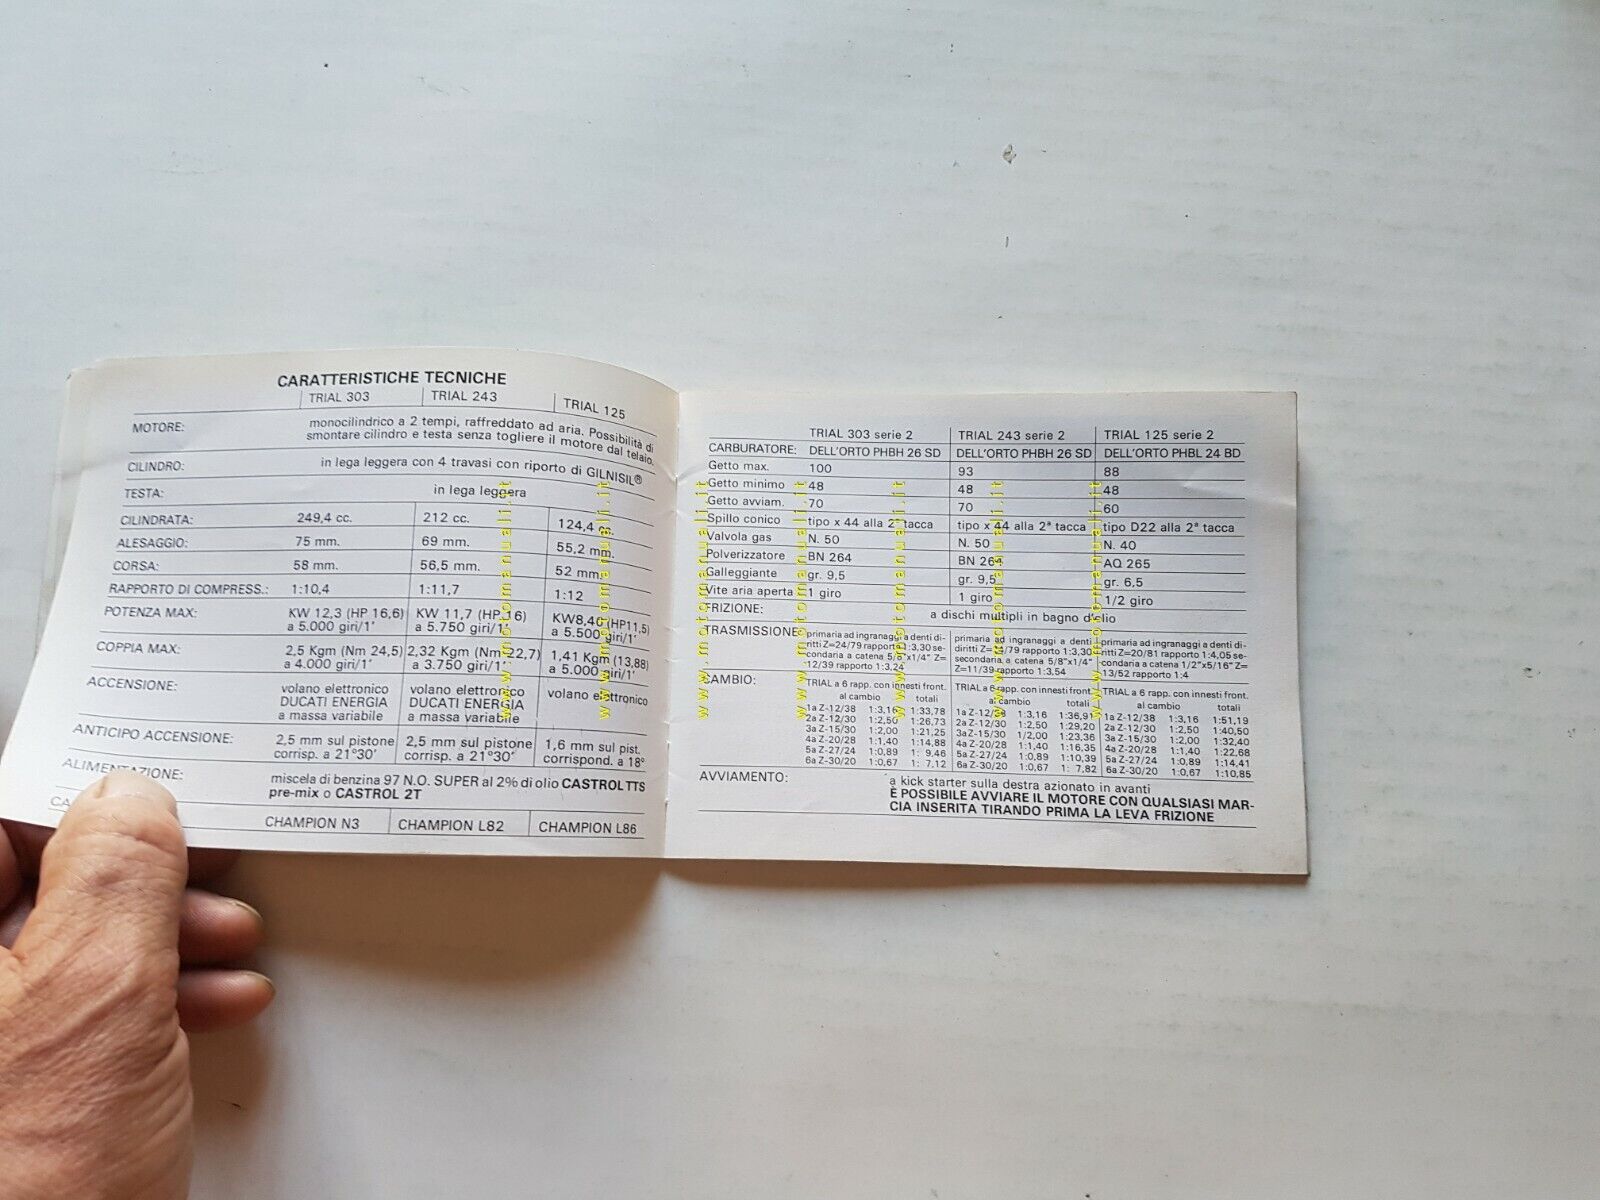 CARATTERISTICHE TECNICHE
TRIAL 303 TRIAL 243 TRIAL 125
MOTORE: monocilindrico a 2 tempi, raffreddato ad aria. Possibilità di
smontare cilindro e testa senza togliere il motore dal telaio.
CILINDRO: in lega leggera con 4 travasi con riporto di GILNISIL®
TESTA: in lega leggera
CILINDRATA: 249,4 cc. 212 cc. 124,4 cc.
ALESAGGIO: 75 mm. 69 mm. 55,2 mm.
CORSA: 58 mm. 56,5 mm. 52 mm.
RAPPORTO DI COMPRESS.: 1:10,4 1:11,7 1:12
POTENZA MAX: KW 12,3 (HP 16,6) KW 11,7 (HP 16) KW8,40 (HP11,5)
a 5.000 giri/1' a 5.750 giri/1' a 5.500 giri/1'
COPPIA MAX: 2,5 Kgm (Nm 24,5) 2,32 Kgm (Nm 22,7) 1,41 Kgm (13,88)
a 4.000 giri/1' a 3.750 giri/1' a 5.000 giri/1'
ACCENSIONE: volano elettronico volano elettronico volano elettronico
DUCATI ENERGIA DUCATI ENERGIA
a massa variabile a massa variabile
ANTICIPO ACCENSIONE: 2,5 mm sul pistone 2,5 mm sul pistone 1,6 mm sul pist.
corrisp. a 21°30' corrisp. a 21°30' corrispond. a 18°
ALIMENTAZIONE: miscela di benzina 97 N.O. SUPER al 2% di olio CASTROL TTS
pre-mix o CASTROL 2T
CHAMPION N3 CHAMPION L82 CHAMPION L86
TRIAL 303 serie 2 TRIAL 243 serie 2 TRIAL 125 serie 2
CARBURATORE: DELL'ORTO PHBH 26 SD DELL'ORTO PHBH 26 SD DELL'ORTO PHBL 24 BD
Getto max. 100 93 88
Getto minimo 48 48 48
Getto avviam. 70 70 60
Spillo conico tipo x 44 alla 2ª tacca tipo x 44 alla 2ª tacca tipo D22 alla 2ª tacca
Valvola gas N. 50 N. 50 N. 40
Polverizzatore BN 264 BN 264 AQ 265
Galleggiante gr. 9,5 gr. 9,5 gr. 6,5
Vite aria aperta 1 giro 1 giro 1/2 giro
FRIZIONE: a dischi multipli in bagno d'olio
TRASMISSIONE: primaria ad ingranaggi a denti di- primaria ad ingranaggi a denti primaria ad ingranaggi a denti di-
ritti Z=24/79 rapporto 1:3,30 se- diritti Z=24/79 rapporto 1:3,30 ritti Z=20/81 rapporto 1:4,05 se-
condaria a catena 5/8"x1/4" Z= secondaria a catena 5/8"x1/4" condaria a catena 1/2"x5/16" Z=
12/39 rapporto 1:3,24 Z=11/39 rapporto 1:3,54 13/52 rapporto 1:4
CAMBIO: TRIAL a 6 rapp. con innesti front. TRIAL a 6 rapp. con innesti front. TRIAL a 6 rapp. con innesti front.
al cambio totali al cambio totali al cambio totali
1a Z-12/38 1:3,16 1:33,78 1a Z-12/38 1:3,16 1:36,91 1a Z-12/38 1:3,16 1:51,19
2a Z-12/30 1:2,50 1:26,73 2a Z-12/30 1:2,50 1:29,20 2a Z-12/30 1:2,50 1:40,50
3a Z-15/30 1:2,00 1:21,25 3a Z-15/30 1/2,00 1:23,36 3a Z-15/30 1:2,00 1:32,40
4a Z-20/28 1:1,40 1:14,88 4a Z-20/28 1:1,40 1:16,35 4a Z-20/28 1:1,40 1:22,68
5a Z-27/24 1:0,89 1: 9,46 5a Z-27/24 1:0,89 1:10,39 5a Z-27/24 1:0,89 1:14,41
6a Z-30/20 1:0,67 1: 7,12 6a Z-30/20 1:0,67 1: 7,82 6a Z-30/20 1:0,67 1:10,85
AVVIAMENTO: a kick starter sulla destra azionato in avanti
È POSSIBILE AVVIARE IL MOTORE CON QUALSIASI MAR-
CIA INSERITA TIRANDO PRIMA LA LEVA FRIZIONE
www.motomanuali.it
www.motomanuali.it
www.motomanuali.it
www.motomanuali.it
www.motomanuali.it
www.motomanuali.it
www.motomanuali.it